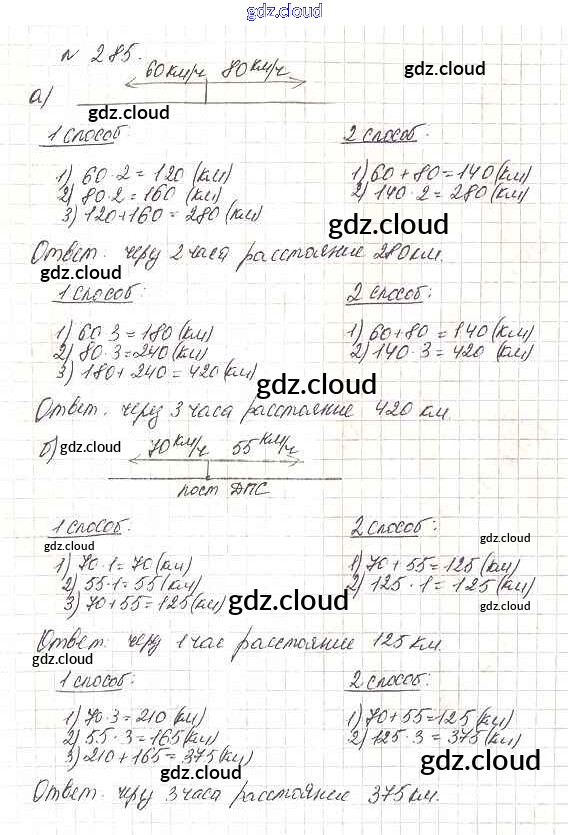 gdz.cloud
№ 285.
60 км/ч 80 км/ч
gdz.cloud
а)
gdz.cloud
1 способ. 2 способ.
1) 60·2=120 (км) 1) 60+80=140 (км)
2) 80·2=160 (км) 2) 140·2=280 (км)
3) 120+160=280 (км)
gdz.cloud
Ответ: через 2 часа расстояние 280 км.
gdz.cloud
1 способ: 2 способ:
gdz.cloud
1) 60·3=180 (км) 1) 60+80=140 (км)
2) 80·3=240 (км) 2) 140·3=420 (км)
3) 180+240=420 (км)
gdz.cloud
Ответ. через 3 часа расстояние 420 км.
б) gdz.cloud 70 км/ч 55 км/ч
gdz.cloud
пост ДПС
1 способ. 2 способ:
gdz.cloud gdz.cloud
1) 70·1=70 (км) 1) 70+55=125 (км)
2) 55·1=55 (км) 2) 125·1=125 (км)
3) 70+55=125 (км)
gdz.cloud gdz.cloud
Ответ: через 1 час расстояние 125 км.
gdz.cloud
1 способ: 2 способ:
gdz.cloud
1) 70·3=210 (км) 1) 70+55=125 (км)
2) 55·3=165 (км) 2) 125·3=375 (км)
3) 210+165=375 (км)
gdz.cloud gdz.cloud
Ответ. через 3 часа расстояние 375 км.
gdz.cloud